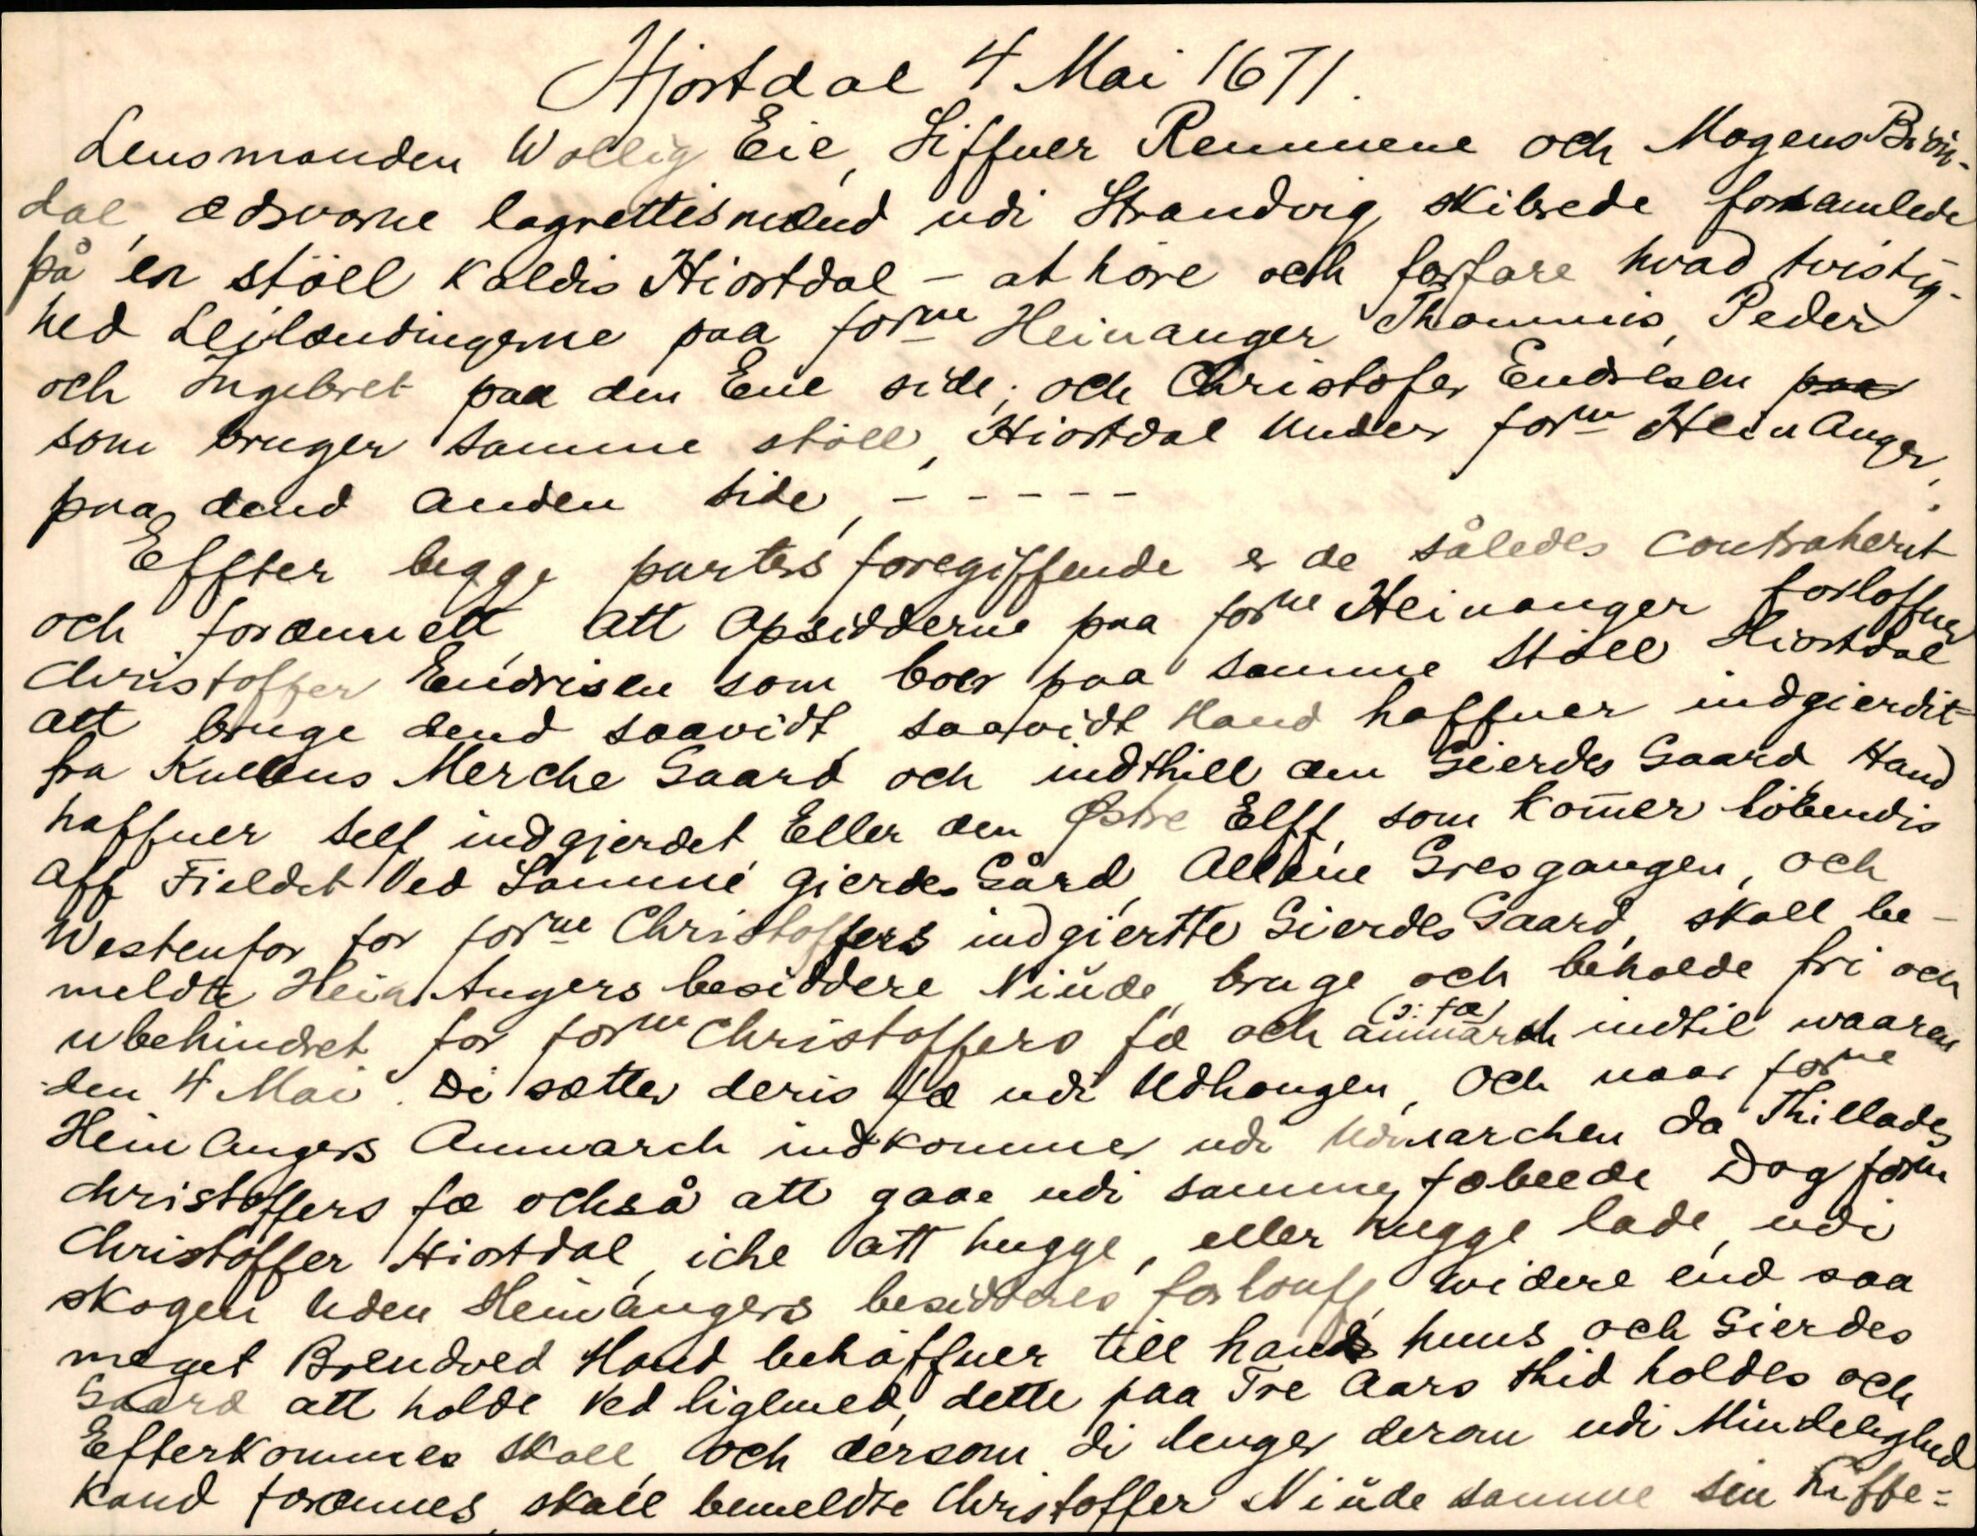 Hjortdal 4 Mai 1671.
Lensmanden Wollig Eie, Siffuer Remmene och Mogens Brön-
dal, Edsvorne lagrettismænd udi Strandvig skibrede forsamlede
på en stöll Kaldis Hiortdal - at höre och forfare hvad tvistig-
hed Leilændingerne paa forne Heinanger Thommis, Peder
och Ingebret paa den Ene side, och Christofer Endresen paa
som bruger samme stöll, Hiortdal Under forne Hein Anger,
paa dend anden side, - - - - -
Effter begge parters foregiffende er de således contraherit
och forænnett, att Opsidderne paa forne Heinanger forloffuer
Christoffer Endrisen som boer paa samme Stöll Hiortdal
att bruge dend saavidt, saavidt Hand haffuer indgierdit
fra Kuellus Merche Gaard, och indthill den Gierdes Gaard Hand
haffuer self indgjerdet, Eller den Østre Elff, som Kom̄er löbendis
Aff Fieldet Ved Samme gierdes Gård, Allene Gresgangen, och
Westenfor for forne Christoffers indgiertte Gierdes Gaard, skall be-
meldte Hein Angers besiddere Niüde, bruge och beholde fri och
ubehindret for forne Christoffers fæ och (ɔ: fæ) ammarch indtil waaren
den 4 Mai. Di sætter deris fæ udi Udhaugen, Och naar forne
Hein Angers Ammarch indkommer udi Udmarchen da Thillades
Christoffers fæ också att gaae udi samme fæbeede Dog forne
Christoffer Hiortdal, iche att hugge, eller hugge lade, udi
skogen Uden Heinangers besidderes forlouff, widere end saa
meget Brendved Hand behaffuer till hands huus och Gierdes
Gaard att holde Ved ligemed, dette paa Tre Aars thid holdes och
Efterkommes skall, och dersom di lenger derom udi Mindelighed
kand forænnes, skall bemeldte Christoffer Niüde samme sin Liffe=